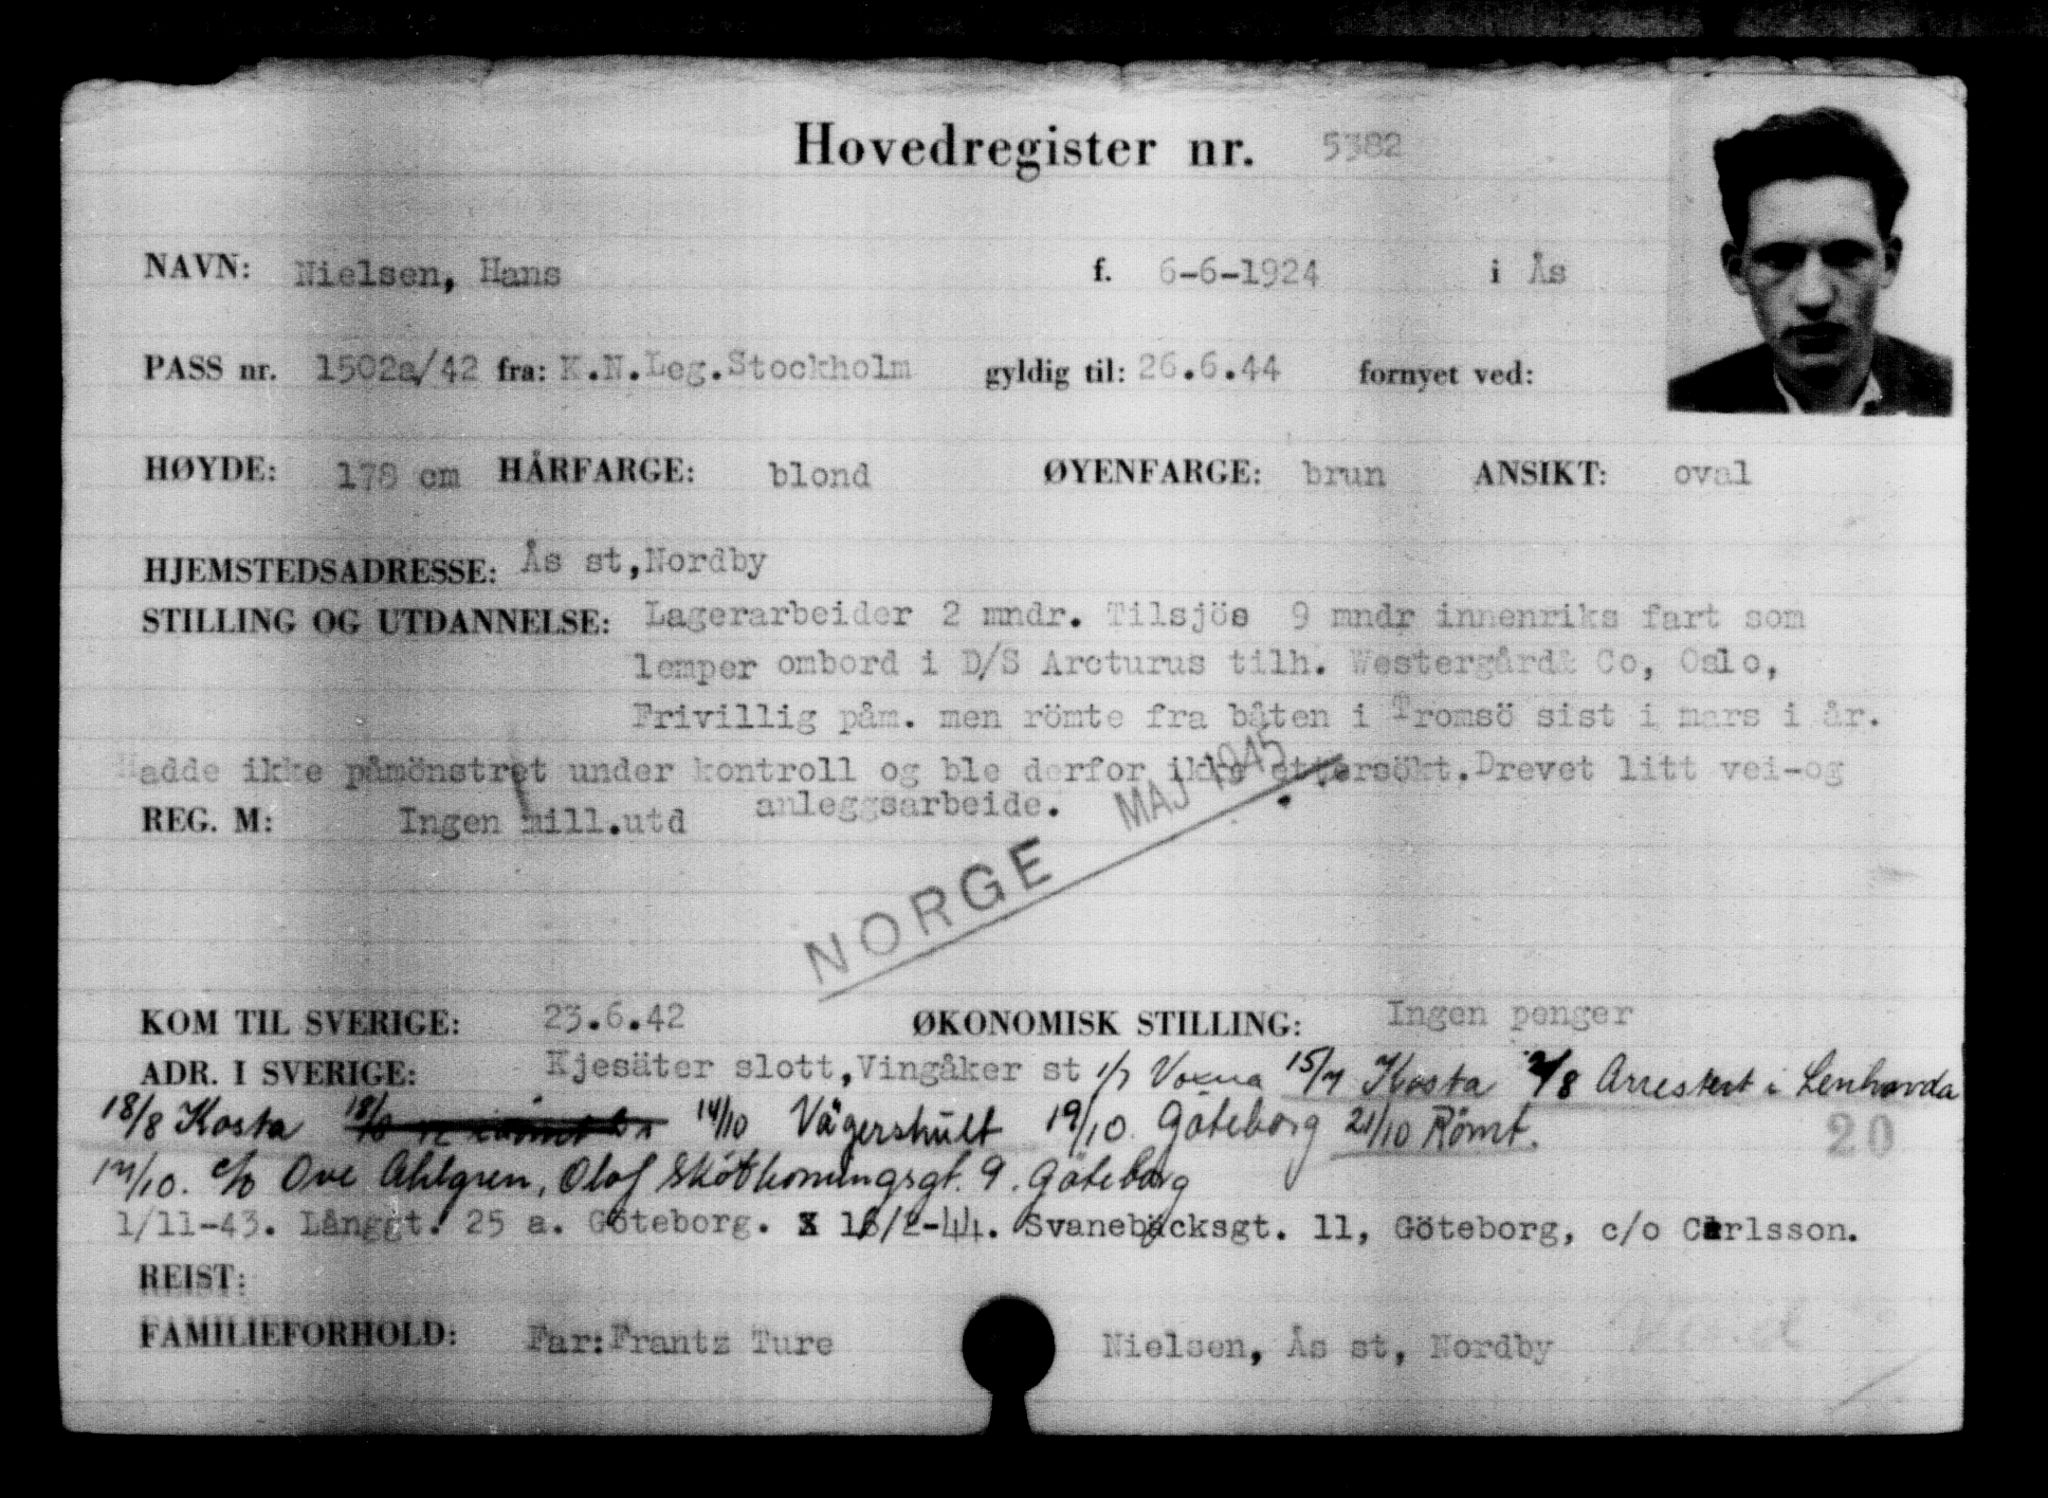 Hovedregister nr. 5382
NAVN: Nielsen, Hans f. 6-6-1924 i Ås
PASS nr. 1502a/42 fra: K.N.Leg.Stockholm gyldig til: 26.6.44 fornyet ved:
HØYDE: 178 cm HÅRFARGE: blond ØYENFARGE: brun ANSIKT: oval
HJEMSTEDSADRESSE: Ås st,Nordby
STILLING OG UTDANNELSE: Lagerarbeider 2 mndr. Tilsjös 9 mndr innenriks fart som
lemper ombord i D/S Arcturus tilh. Westergård& Co, Oslo,
Frivillig påm. men römte fra båten i Tromsö sist i mars i år.
Hadde ikke påmönstret under kontroll og ble derfor ikke ettersökt.Drevet litt vei-og
anleggsarbeide.
REG. M: Ingen mill.utd
NORGE MAJ 1945
KOM TIL SVERIGE: 23.6.42 ØKONOMISK STILLING: Ingen penger
ADR. I SVERIGE: Kjesäter slott,Vingåker st 1/7 Voxna 15/7 Kosta 2/8 Arrestert i Lenhovda
18/8 Kosta 14/10 Vägershult 19/10 Göteborg 21/10 Römt.
20
17/10. c/o Ove Ahlgren, Olof Skötkonungsgt. 9. Göteborg
1/11-43. Långgt. 25 a. Göteborg. 16/2-44. Svanebäcksgt. 11, Göteborg, c/o Carlsson.
REIST:
FAMILIEFORHOLD: Far:Frantz Ture Nielsen, Ås st, Nordby